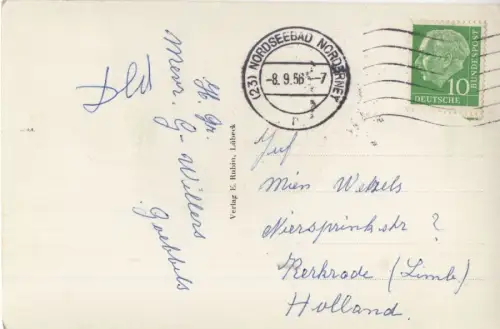 H. Gr.
Mevr. G. Willers
Goebbels
Verlag E. Rubin, Lübeck
(23) NORDSEEBAD NORDERNEY
-8.9.56 -7
n
10
DEUTSCHE BUNDESPOST
Juf
Mien Wetzels
Niersprinkstr ?
Kerkrade (Limb.)
Holland.